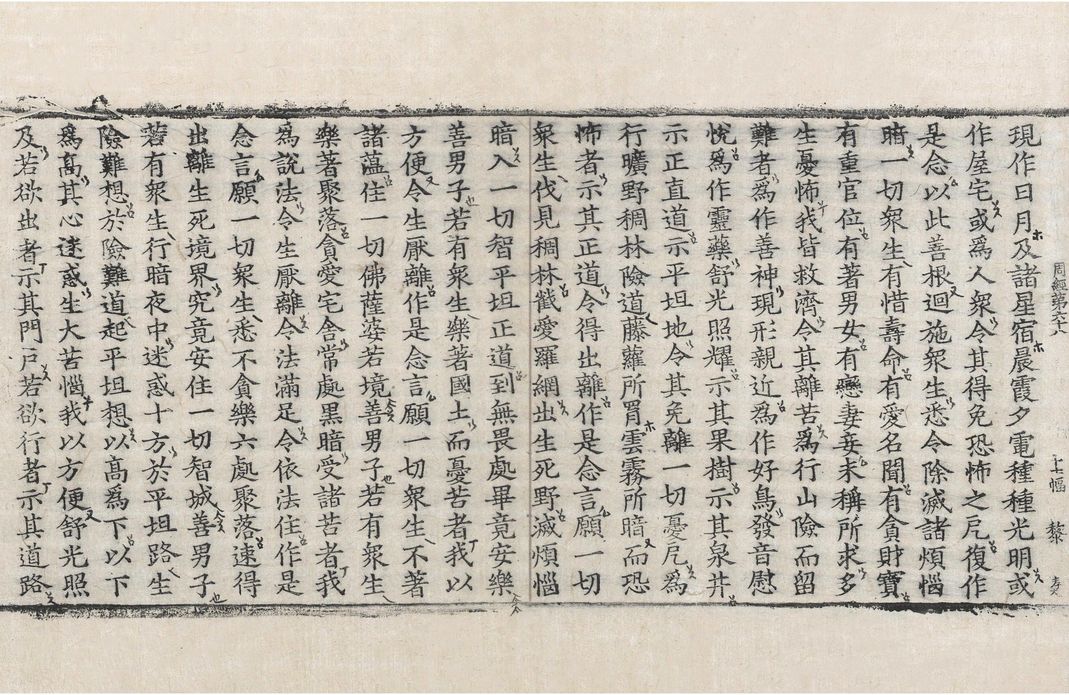 周經第六十八 幅 黎
現作日月及諸星宿晨霞夕電種種光明或
作屋宅或爲人衆令其得免恐怖之戹復作
是念以此善根迴施衆生悉令除滅諸煩惱
暗一切衆生有惜壽命有愛名聞有貪財寶
有重官位有著男女有戀妻妾未稱所求多
生憂怖我皆救濟令其離苦爲行山險而留
難者爲作善神現形親近爲作好鳥發音慰
悅爲作靈藥舒光照耀示其果樹示其泉井
示正直道示平坦地令其免離一切憂戹爲
行曠野稠林險道藤蘿所罥雲霧所暗而恐
怖者示其正道令得出離作是念言願一切
衆生伐見稠林截愛羅網出生死野滅煩惱
暗入一切智平坦正道到無畏處畢竟安樂
善男子若有衆生樂著國土而憂苦者我以
方便令生厭離作是念言願一切衆生不著
諸蘊住一切佛薩婆若境善男子若有衆生
樂著聚落貪愛宅舍常處黑暗受諸苦者我
爲說法令生厭離令法滿足令依法住作是
念言願一切衆生悉不貪樂六處聚落速得
出離生死境界究竟安住一切智城善男子
若有衆生行暗夜中迷惑十方於平坦路生
險難想於險難道起平坦想以高爲下以下
爲高其心迷惑生大苦惱我以方便舒光照
及若欲出者示其門戶若欲行者示其道路